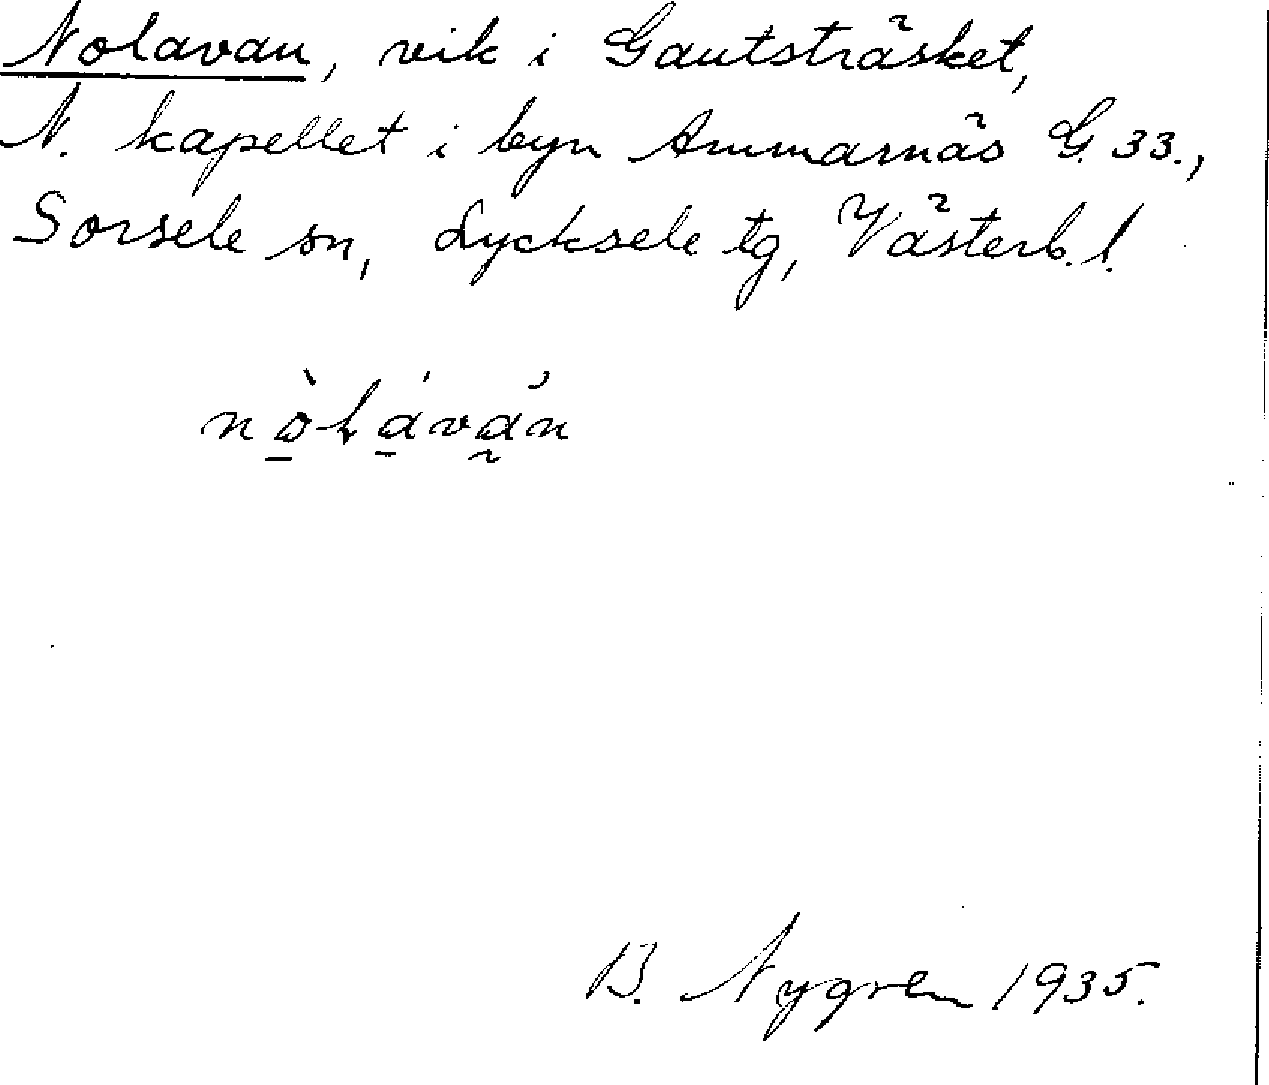 Nolavan, vik i Gautsträsket,
N. kapellet i byn Ammarnäs G. 33.,
Sorsele sn, Lycksele tg, Västerb. l.
nò̱láván
B. Nygren 1935.